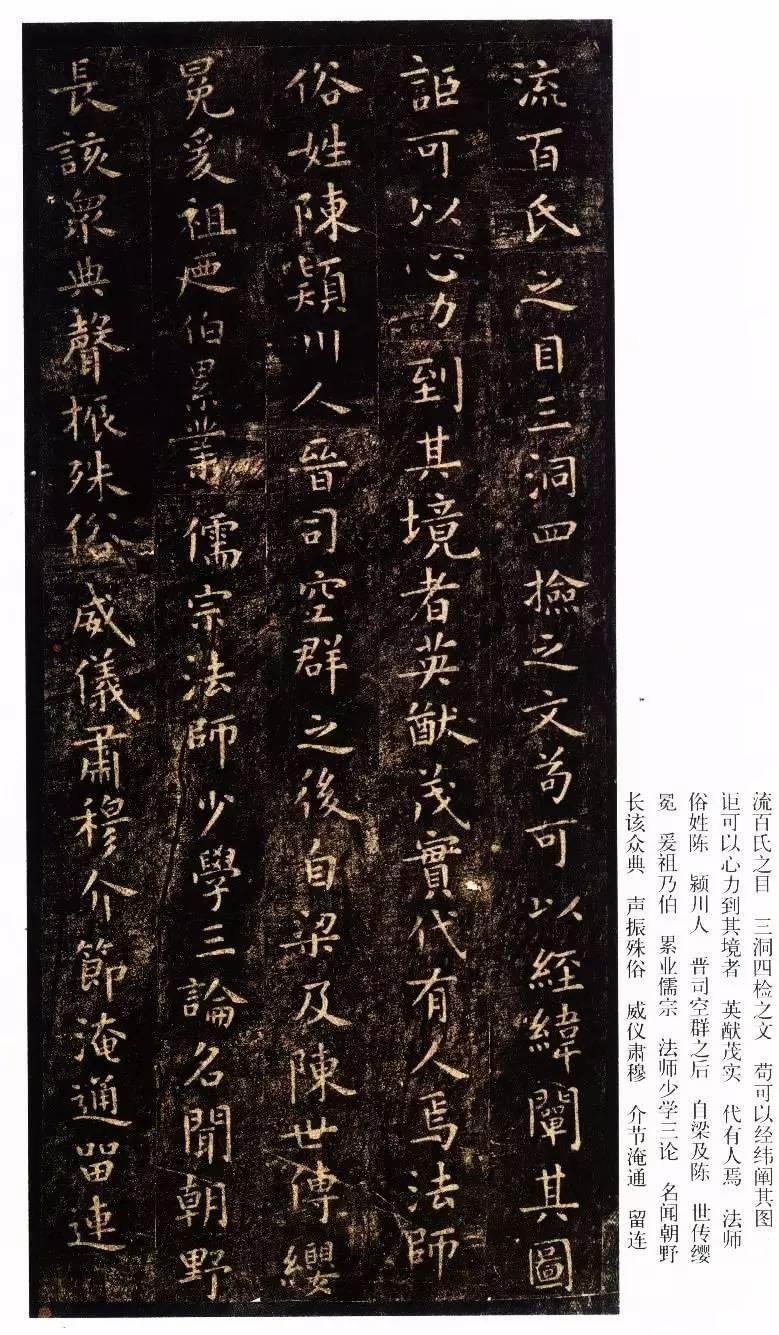 流百氏之目三洞四撿之文苟可以經緯闡其圖
詎可以心力到其境者英猷茂實代有人焉法師
俗姓陳潁川人晉司空群之後自梁及陳世傳纓
冕爰祖迺伯累業儒宗法師少學三論名聞朝野
長該眾典聲振殊俗威儀肅穆介節淹通留連
流百氏之目　三洞四检之文　苟可以经纬阐其图
讵可以心力到其境者　英猷茂实　代有人焉　法师
俗姓陈　颍川人　晋司空群之后　自梁及陈　世传缨
冕　爰祖乃伯　累业儒宗　法师少学三论　名闻朝野
长该众典　声振殊俗　威仪肃穆　介节淹通　留连